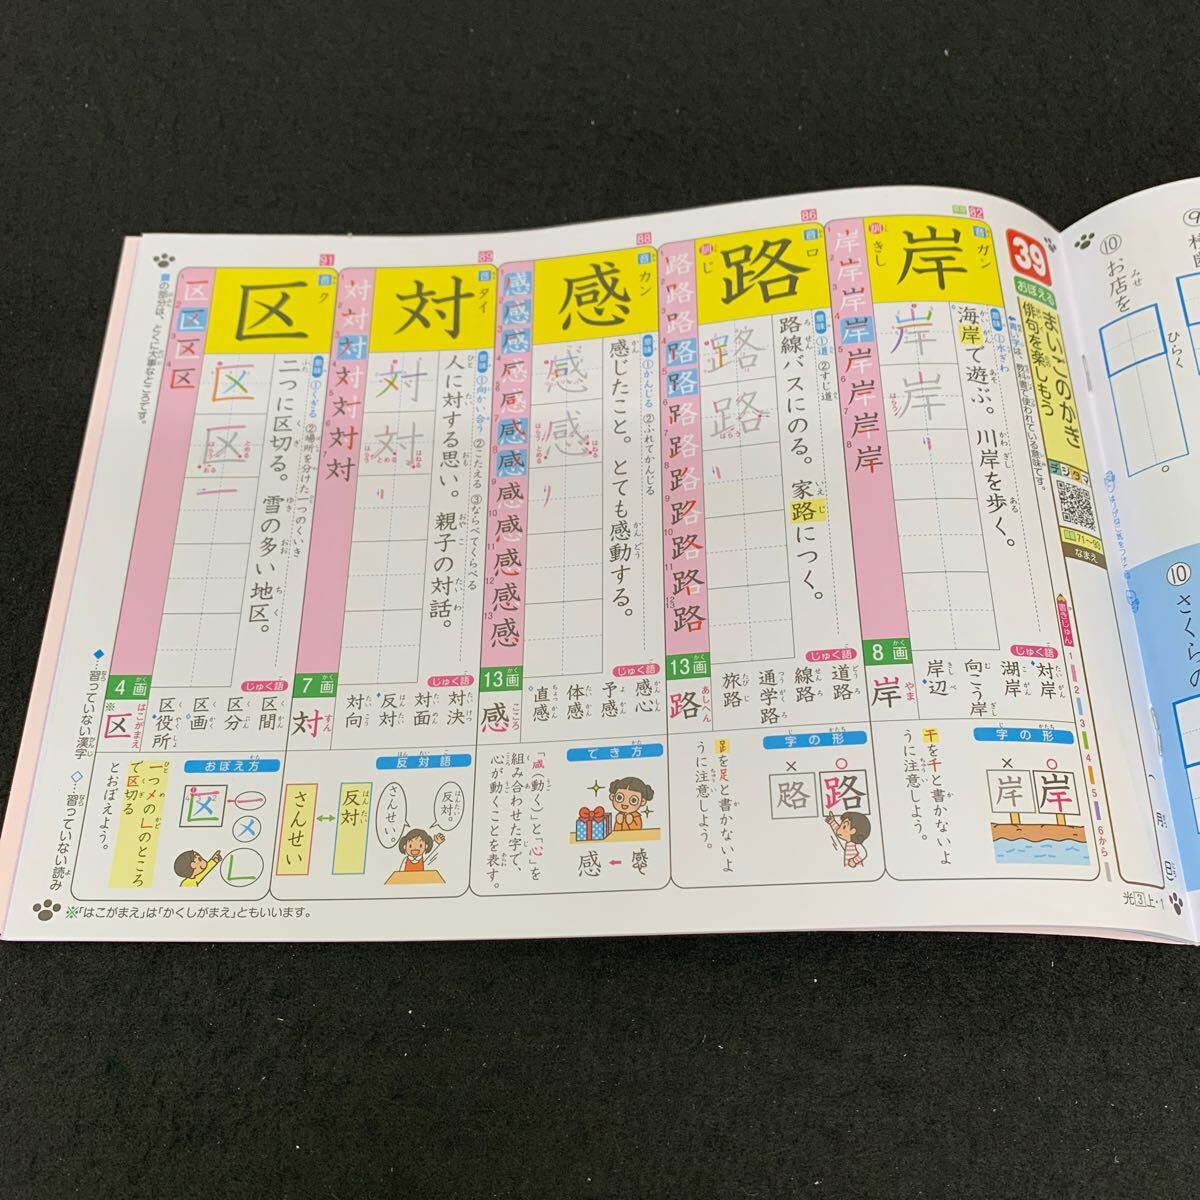 39
おぼえる
まいごのかぎ
俳句を楽しもう
デジタマ
71〜90
なまえ
82
岸
音 ガン
訓 きし
意味 ①水ぎわ
海岸で遊ぶ。川岸を歩く。
8画
じゅく語
対岸
湖岸
向こう岸
岸辺
岸 やま
字の形
○岸
×岸
干を千と書かないように注意しよう。
86
路
音 ロ
訓 じ
意味 ①道 ②すじ道
路線バスにのる。家路につく。
13画
じゅく語
道路
線路
通学路
旅路
路 あしへん
字の形
○路
×路
𧾷を足と書かないように注意しよう。
88
感
音 カン
意味 ①かんじる ②ふれてかんじる
感じたこと。とても感動する。
13画
じゅく語
感心
予感
体感
直感
感 こころ
でき方
「咸(動く)」と「心」を組み合わせた字で、心が動くことを表す。
89
対
音 タイ
意味 ①向かい合う ②こたえる ③ならべてくらべる
人に対する思い。親子の対話。
7画
じゅく語
対決
対面
反対
対向
対 すん
反対語
反対。
さんせい。
反対
さんせい
91
区
音 ク
意味 ①くぎる ②場所を分けた一つのくいき
二つに区切る。雪の多い地区。
4画
じゅく語
区間
区分
区画
区役所
※区 はこがまえ
おぼえ方
一つメのLのところで区切るとおぼえよう。
■の部分は、とくに大事なところです。
◆…習っていない漢字 ◇…習っていない読み
※「はこがまえ」は「かくしがまえ」ともいいます。
書きじゅん
1
2
3
4
5
6から
光3上・1
⑩ お店を
ひらく
。
⑩ さくらの